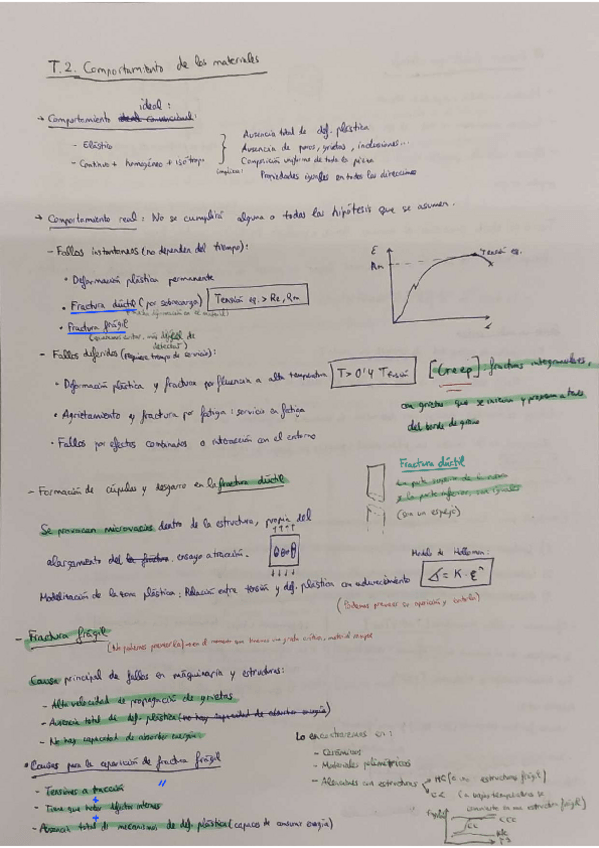 T.2. Comportamiento de los materiales
ideal:
→ Comportamiento
- Elástico
- Continuo + homogéneo + isótropo
Ausencia total de def. plástica
Ausencia de poros, grietas, inclusiones...
Composición uniforme de toda la pieza
Propiedades iguales en todas las direcciones
→ Comportamiento real: No se cumplirá alguna o todas las hipótesis que se asumen.
- Fallos instantáneos (no dependen del tiempo):
• Deformación plástica permanente
• Fractura dúctil (por sobrecarga) Tensión eq. > Re, Rm
• Fractura frágil
detectar)
Rm
Tensión eq.
- Fallos diferidos (requiere tiempo de servicio):
• Deformación plástica y fractura por fluencia a alta temperatura T > 0'4 Tfusión [Creep]: fracturas intergranulares,
con grietas que se inician y progresan a través
del borde de grano
• Agrietamiento y fractura por fatiga: servicio en fatiga
• Fallos por efectos combinados o interacción con el entorno
Fractura dúctil
- Formación de cúpulas y desgarro en la fractura dúctil
y la parte inferior, son iguales
(son un espejo)
Se provocan microvacíos dentro de la estructura, propia del
alargamiento del la fractura. ensayo a tracción.
Modelo de Hollomon:
Modelización de la zona plástica: Relación entre tensión y def. plástica con endurecimiento σ = K · εⁿ
(Podemos prevenir su aparición y controlarla)
- Fractura frágil
(No podemos preverla)
Causa principal de fallos en máquinaria y estructuras:
- Alta velocidad de propagación de grietas
- Ausencia total de def. plástica (no hay capacidad de absorber energía)
- No hay capacidad de absorber energía
• Causas para la aparición de fractura frágil
- Tensiones a tracción
+
- Tiene que haber defectos internos
+
- Ausencia total de mecanismos de def. plástica (capaces de consumir energía)
Lo encontraremos en:
- Cerámicos
- Materiales poliméricos
- Aleaciones con estructuras
HC (es una estructura frágil)
CC (a bajas temperaturas se
convierte en una estructura frágil)
CCC
CC